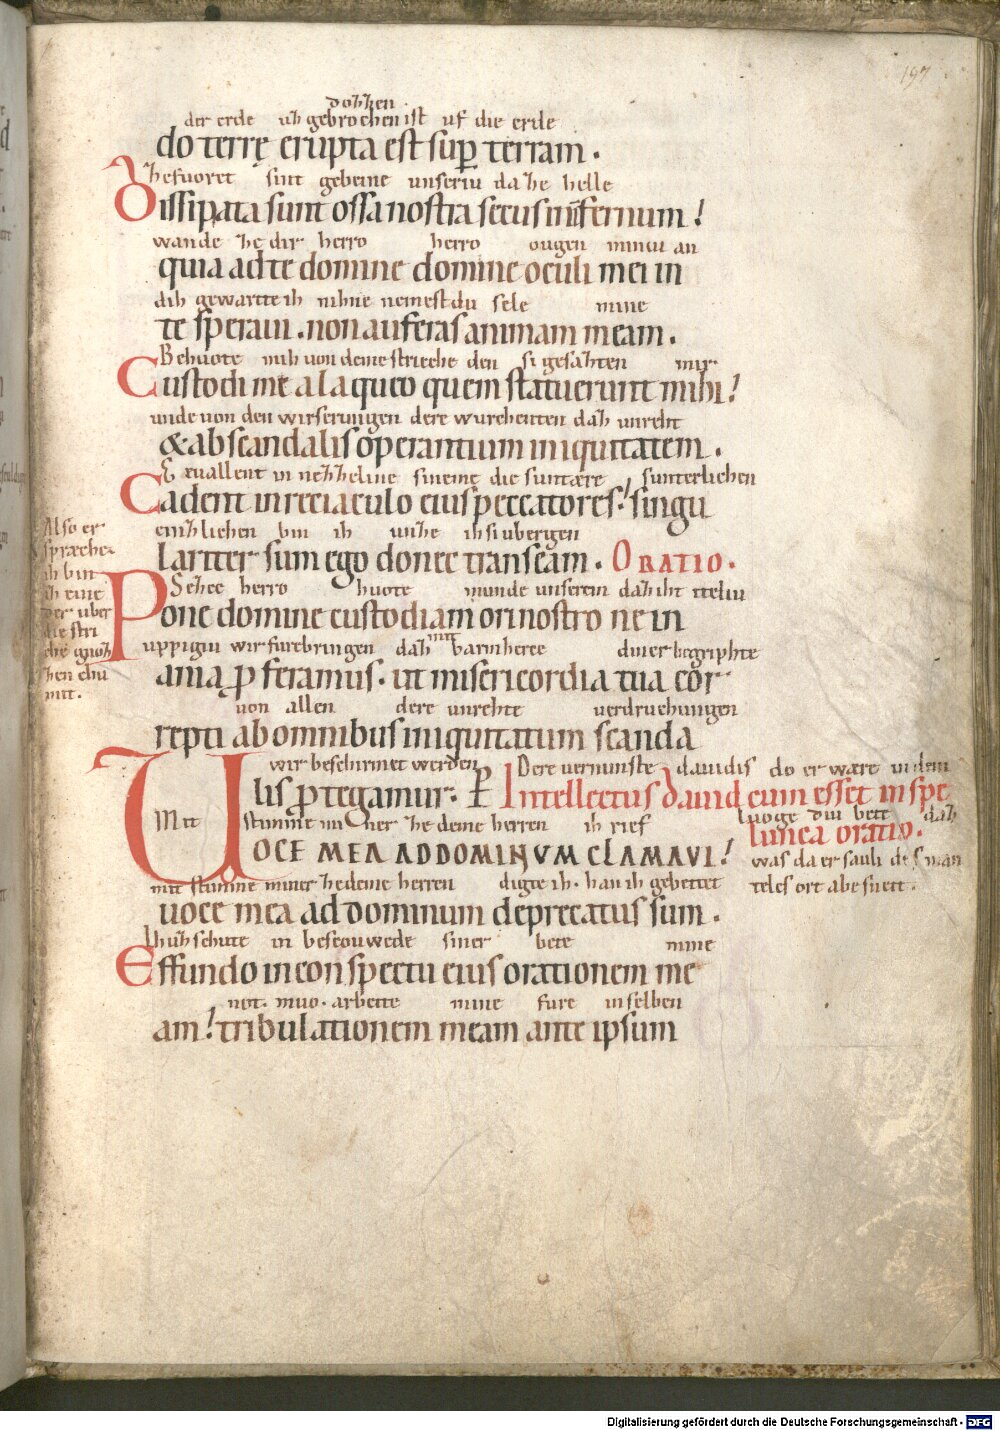 197
dozzen
der erde uñ gebrochen ist uf die erde
do terrę erupta est sup terram.
Zesuoret sint gebeine unseriu da ze helle
Dissipata sunt ossa nostra secus infernum!
wande ze dir herro herro ougen miniu an
quia ad te domine domine oculi mei in
dih gewartte ih nihne nemest du sele mine
te speraui. non auferas animam meam.
Behuote mih uon deme striche den si gesazten mir
Custodi me a laqueo quem statuerunt mihi!
unde uon den wirserungen dere wurchenten daz unreht
& ab scandalis operantium iniquitatem.
Geuallent in nezzeline sineme die suntære sunterlichen
Cadent in retiaculo eius peccatores! singu
einzlichen bin ih unze ih si ubergen
lariter sum ego donec transeam. ORATIO.
Also er
spræche.
ih bin
ih eine
der uber
die stri
che gnoz
zen chu
mit.
Seze herro huote munde unserem daz iht iteliu
Pone domine custodiam ori nostro ne in
uppigiu wir furebringen daz mit barmherce diner begriphte
ania pferamus. ut misericordia tua cor
uon allen dere unrehte uerdruchungen
repti ab omnibus iniquitatum scanda
wir beschirmet werden Dere uernunste dauidis do er ware in dem
lis ptegamur. Intellectus dauid cum esset in spe
Mit stimme miner ze deme herren ih rief luoge diu bett daz
lunca oratio.
UOCE MEA AD DOMINUM CLAMAVI!
was da er sauli des man
mit stimme miner ze deme herren digte ih. han ih gebettet
teles ort abe sneit.
uoce mea ad dominum deprecatus sum.
Uzschute in bescouwede siner bete mine
Effundo in conspectu eius orationem me
not. muo. arbeite mine fure in selben
am! tribulationem meam ante ipsum
Digitalisierung gefördert durch die Deutsche Forschungsgemeinschaft - DFG